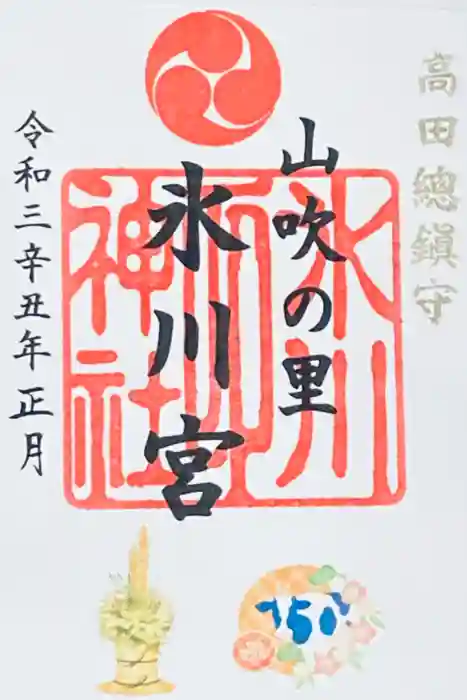 高田總鎮守
山吹の里
氷川宮
令和三辛丑年正月
氷川
神社